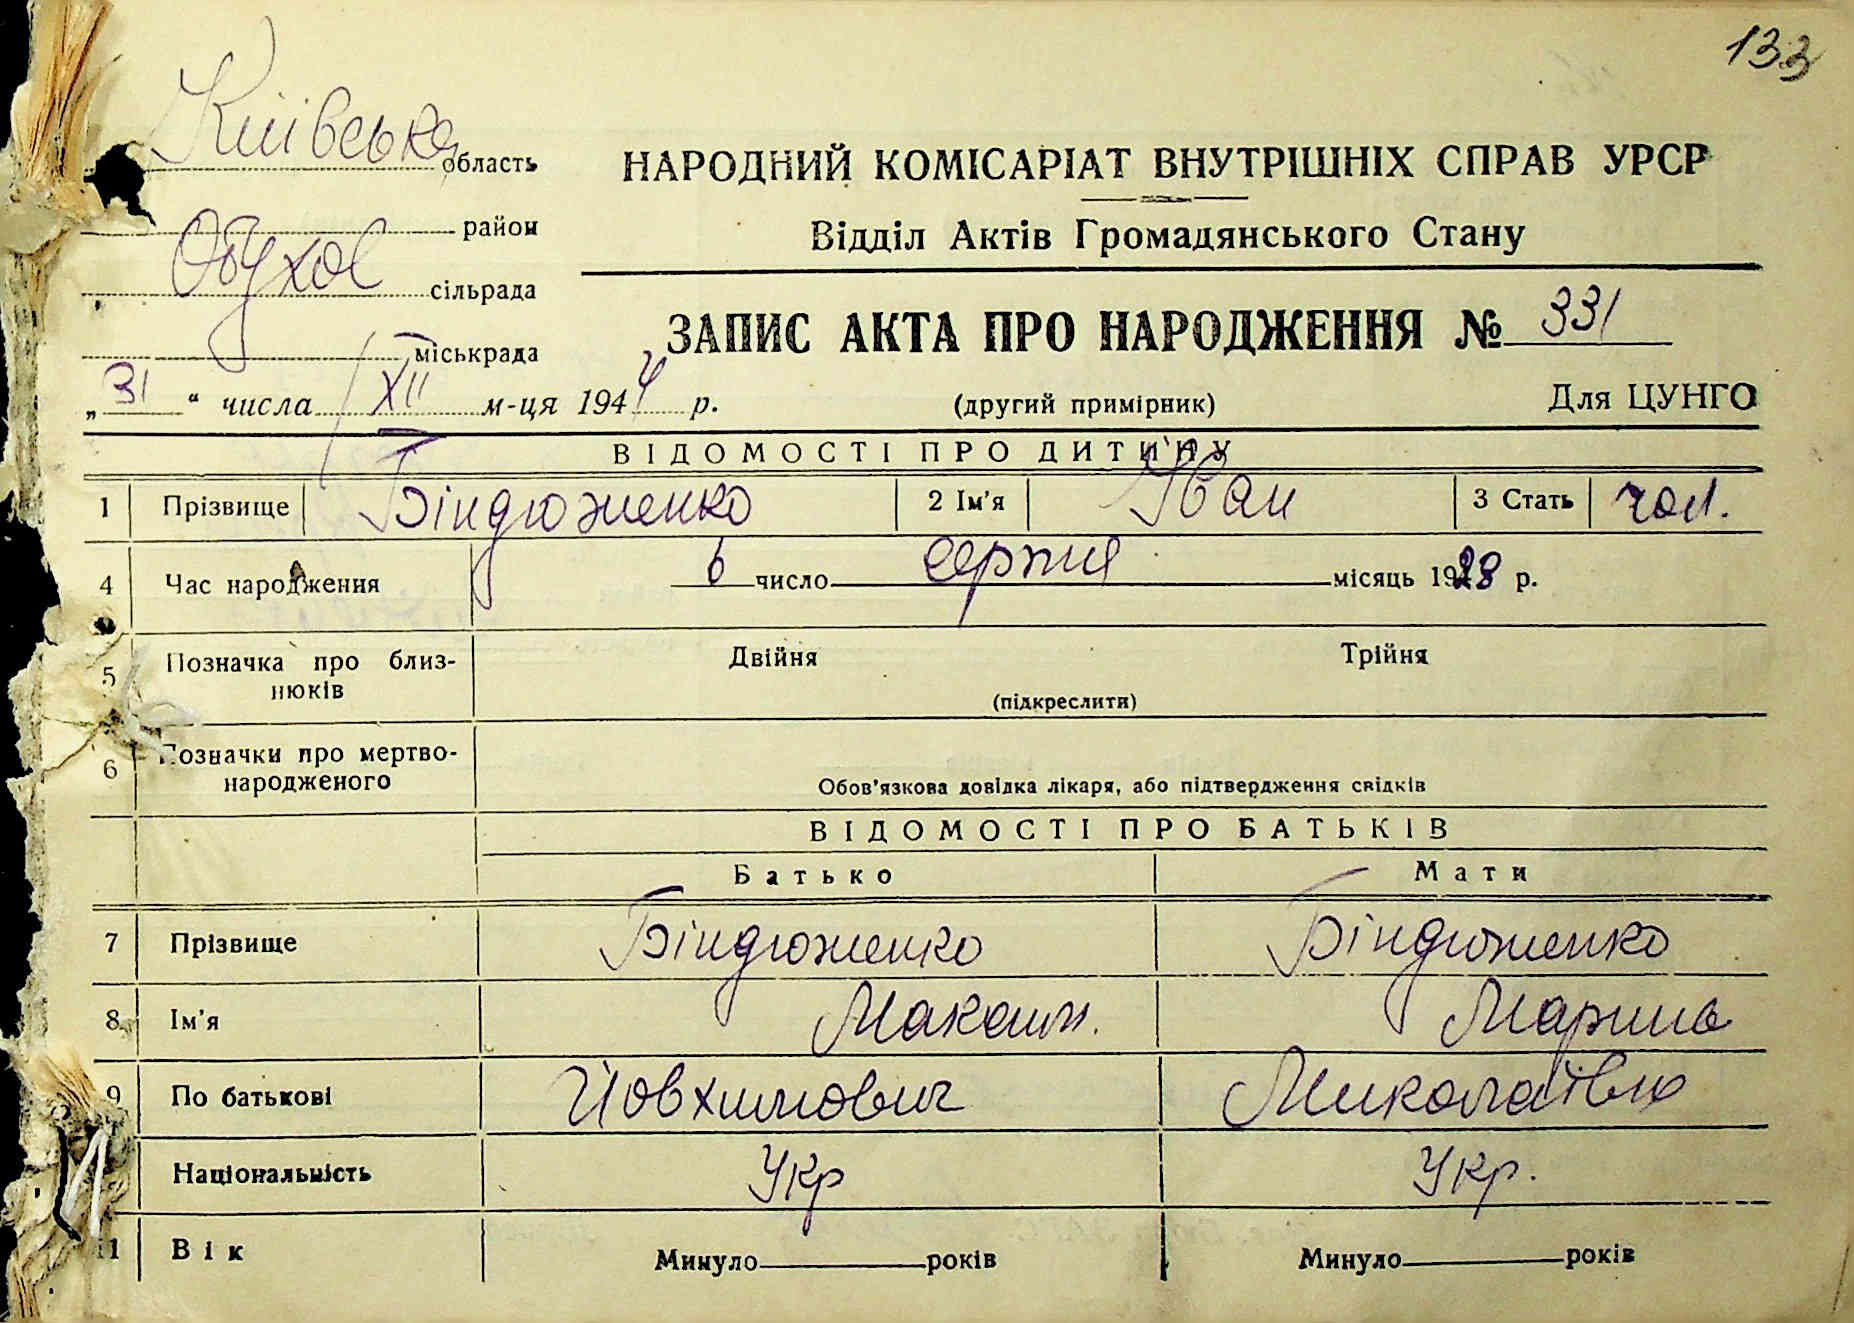 133
Київська область
район
Обухов
сільрада
міськрада
„31“ числа XII м-ця 1944 р.
НАРОДНИЙ КОМІСАРІАТ ВНУТРІШНІХ СПРАВ УРСР
Відділ Актів Громадянського Стану
ЗАПИС АКТА ПРО НАРОДЖЕННЯ № 331
(другий примірник) Для ЦУНГО
ВІДОМОСТІ ПРО ДИТИНУ
1 Прізвище Біндюженко 2 Ім'я Іван 3 Стать чол.
4 Час народження 6 число серпня місяць 1928 р.
5 Позначка про близнюків Двійня Трійня
(підкреслити)
6 Позначки про мертвонародженого
Обов'язкова довідка лікаря, або підтвердження свідків
ВІДОМОСТІ ПРО БАТЬКІВ
Батько Мати
7 Прізвище Біндюженко Біндюженко
8 Ім'я Максим. Марина
9 По батькові Йовхимович Миколаївна
Національність Укр Укр.
11 Вік Минуло років Минуло років